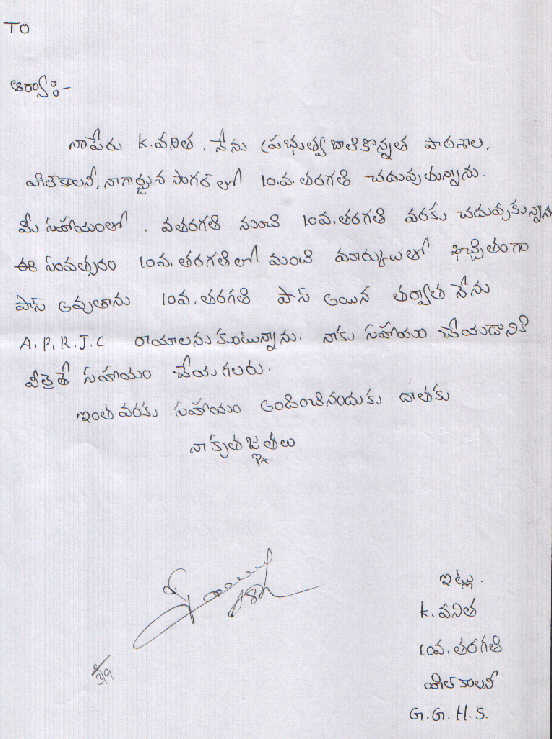 TO
ఆర్యా:-
నాపేరు K.వనిత. నేను ప్రభుత్వ బాలికోన్నత పాఠశాల,
హిల్‌కాలనీ, నాగార్జున సాగర్ లో 10వ.తరగతి చదువుతున్నాను.
మీ సహాయంతో. వతరగతి నుంచి 10వ.తరగతి వరకు చదువుకున్నాను
ఈ సంవత్సరం 10వ.తరగతి లో మంచి మార్కులతో ఖచ్చితంగా
పాస్ అవుతాను 10వ.తరగతి పాస్ అయిన తర్వాత నేను
A.P.R.J.C రాయాలనుకుంటున్నాను. నాకు సహాయం చేయడానికి
వీలైతే సహాయం చేయగలరు.
ఇంత వరకు సహాయం అందించినందుకు దాతకు
నా కృతజ్ఞతలు
ఇట్లు.
K.వనిత
10వ.తరగతి
హిల్‌కాలనీ
G.G.H.S.